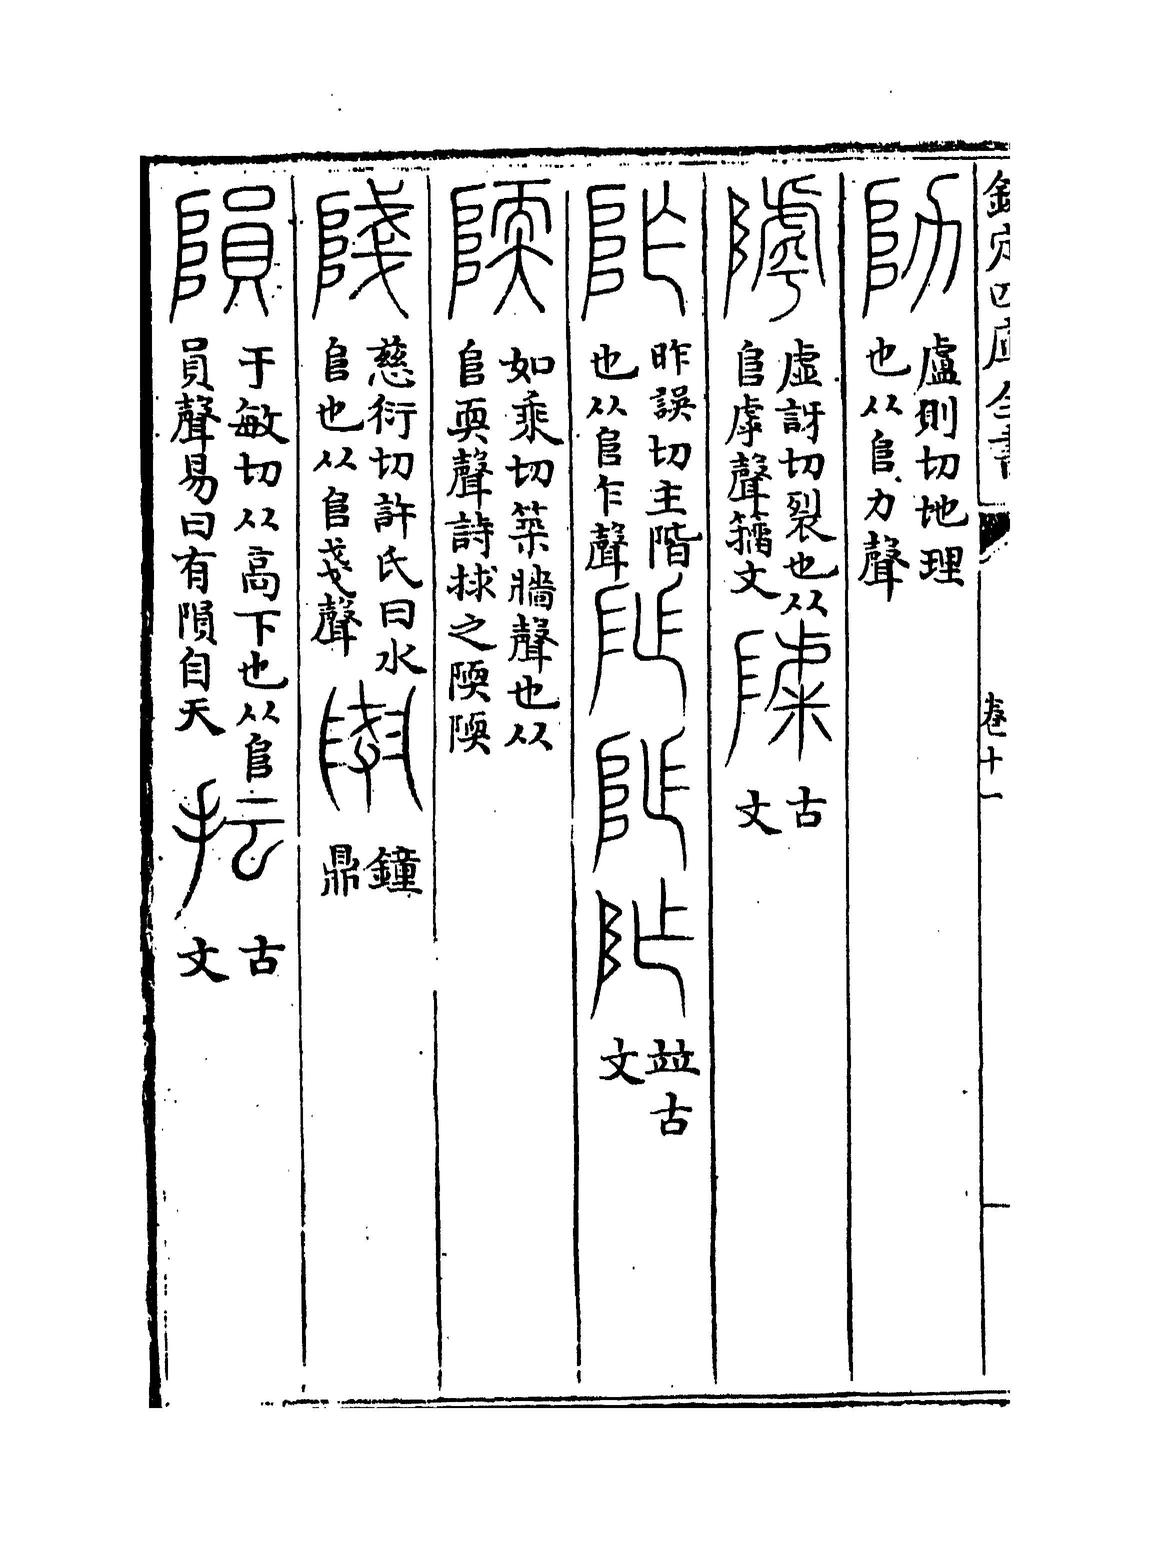 欽定四庫全書
卷十一
阞
盧則切地理
也从𨸏力聲
虛訝切裂也从
𨸏虖聲籒文
古
文
阼
昨誤切主階
也从𨸏乍聲
阼
阼
阼
竝古
文
陾
如乘切築牆聲也从
𨸏耎聲詩捄之陾陾
䧖
慈衍切許氏曰水
𨸏也从𨸏戔聲
鐘
鼎
隕
于敏切从高下也从𨸏
員聲易曰有隕自天
抎
古
文